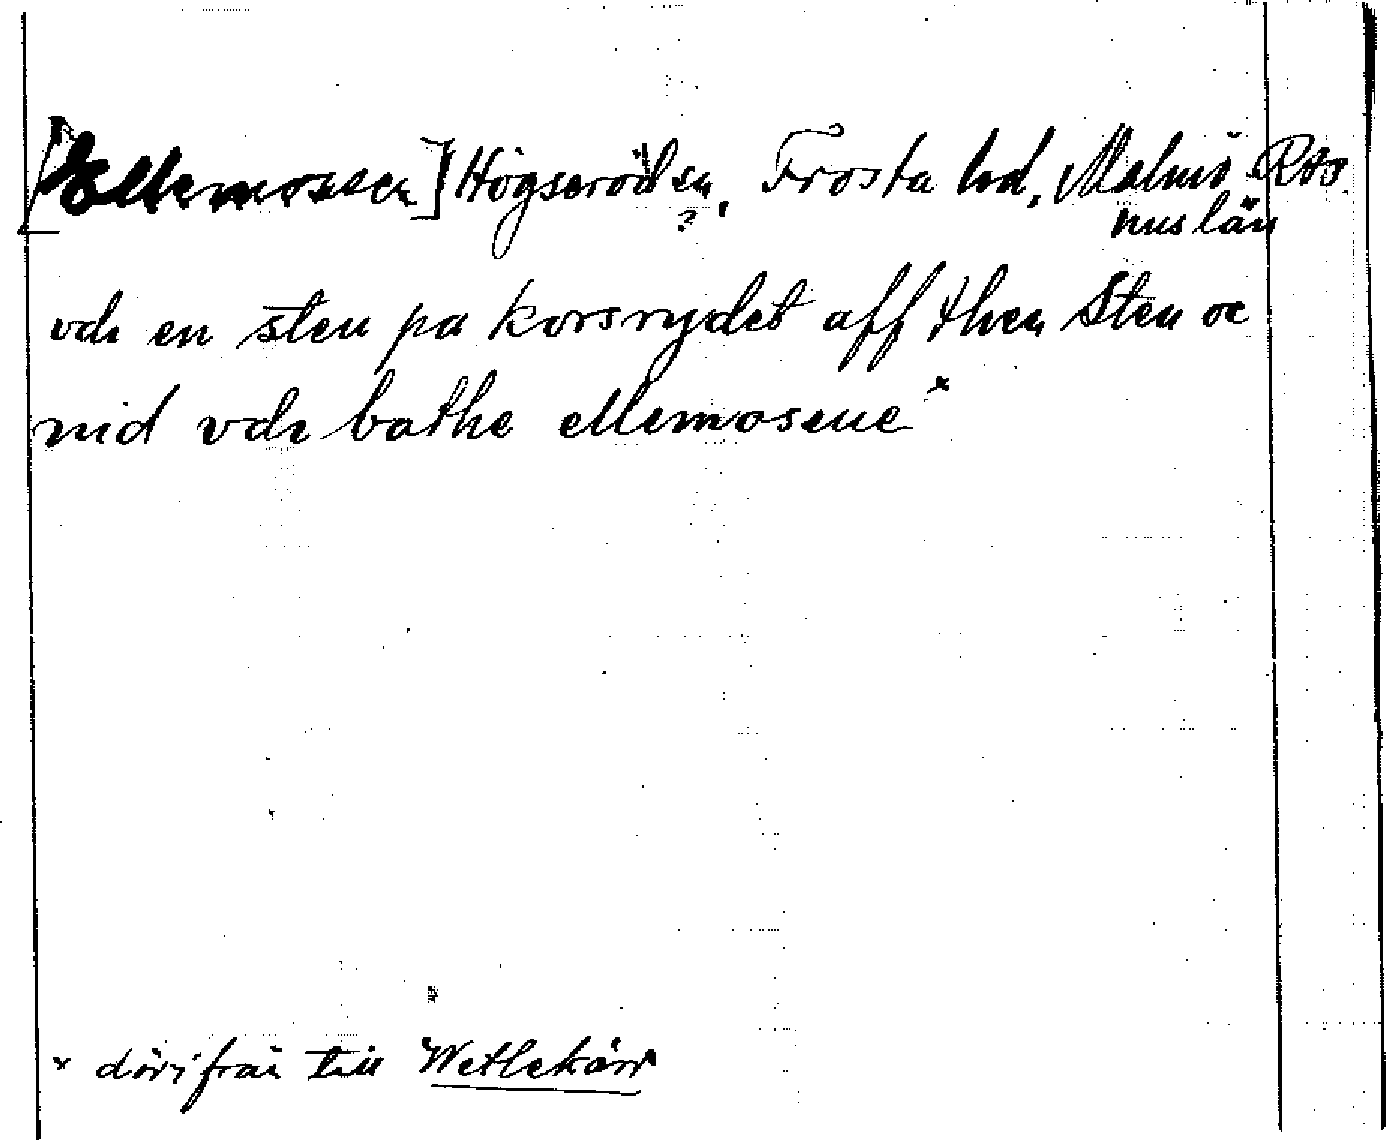 [Ellemossen] Högseröd sn, Frosta hd, Malmö
hus län
?
vdi en sten pa korsrydet aff then Sten oc
nid vdi bathe ellemosene*
* därifrån till Wetlekärr